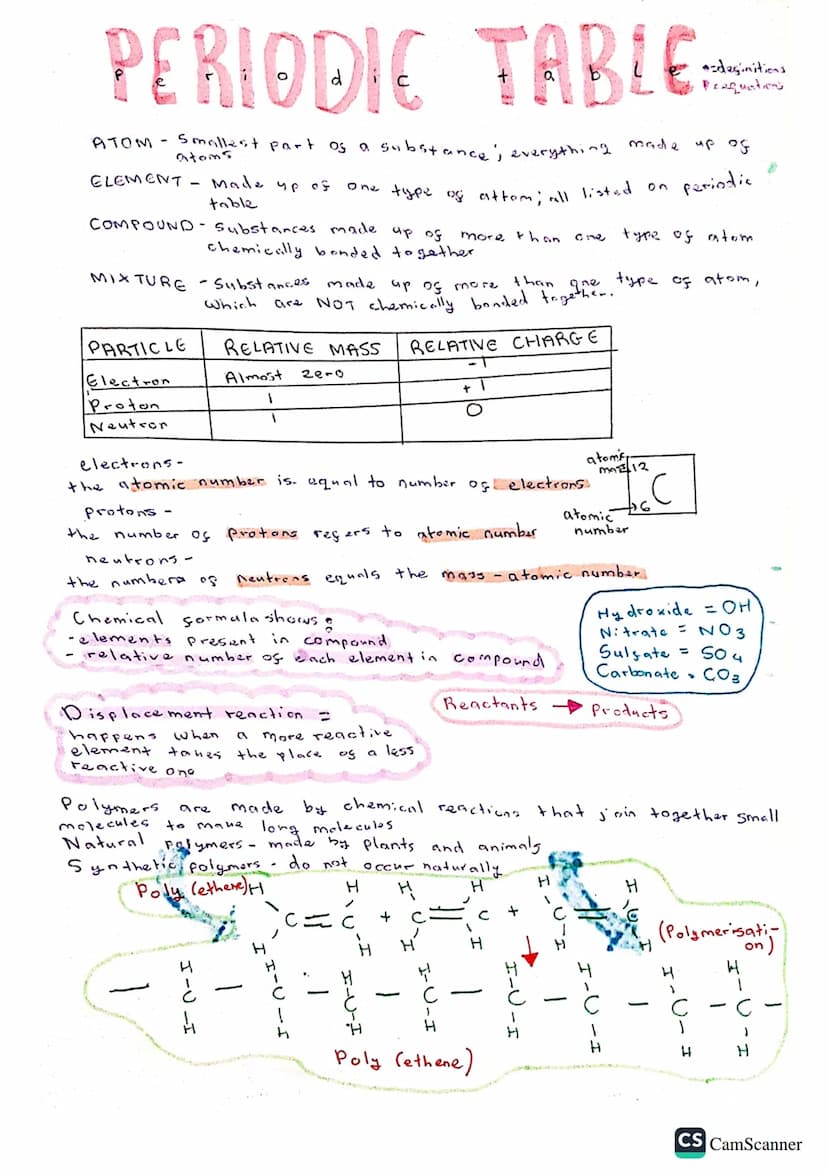 PERIODIC TABLE
Periodic table
*=definitions
ATOM - Smallest part of a substance; everything made up of
atoms
ELEMENT - Made up of one type of attom; all listed on periodic
table
COMPOUND - Substances made up of more than one type of atom
chemically bonded together
MIXTURE - Substances made up of more than one type of atom,
which are NOT chemically bonded together.
PARTICLE RELATIVE MASS RELATIVE CHARGE
Electron Almost zero -1
Proton 1 +1
Neutron 1 0
electrons -
the atomic number is equal to number of electrons
atomic
mass 12
C
6
atomic
number
protons -
the number of protons refers to atomic number
neutrons -
the numbers of neutrons equals the mass - atomic number
Chemical formula shows:
- elements present in compound
- relative number of each element in compound
Hydroxide = OH
Nitrate = NO3
Sulfate = SO4
Carbonate = CO3
Reactants → Products
Displacement reaction =
happens when a more reactive
element takes the place of a less
reactive one
Polymers are made by chemical reactions that join together small
molecules to make long molecules
Natural polymers - made by plants and animals
Synthetic polymers - do not occur naturally
Poly (ethene)
H H H H H H
C = C + C = C + C = C
H H H H H H
(Polymerisati-
on)
H H H H H H H H
- C - C - C - C - C - C - C - C -
H H H H H H H H
Poly (ethene)
CS CamScanner